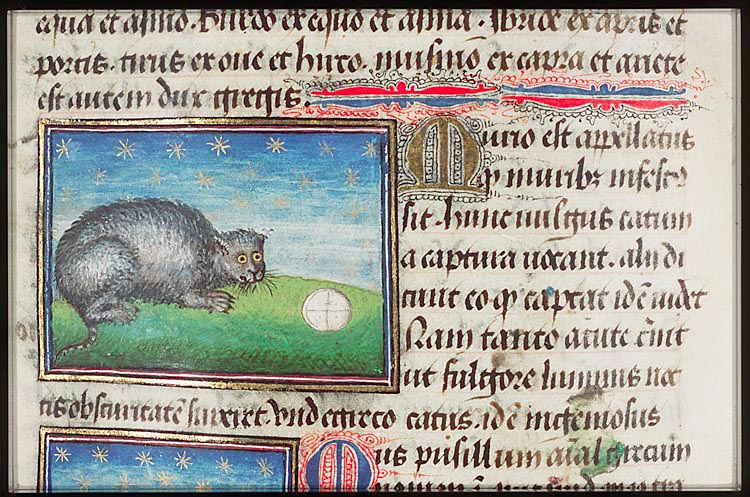 equa et asino. Burdo ex equo et asina. Ibride ex apris et
porcis. tirus ex oue et hirco. musmo ex capra et ariete
est autem dux gregis.
Musio est appellatus
ꝙ muribꝫ infestꝰ
sit. hunc uulgus catum
a captura uocant. alij di
cunt eo ꝙ captat idē uidet
Nam tanto acute c̄nit
ut fulgore luminis noc
tis obscuritatē suꝑet. vnde greco catus. idē ingeniosus
Mus pusillum aīal grecum